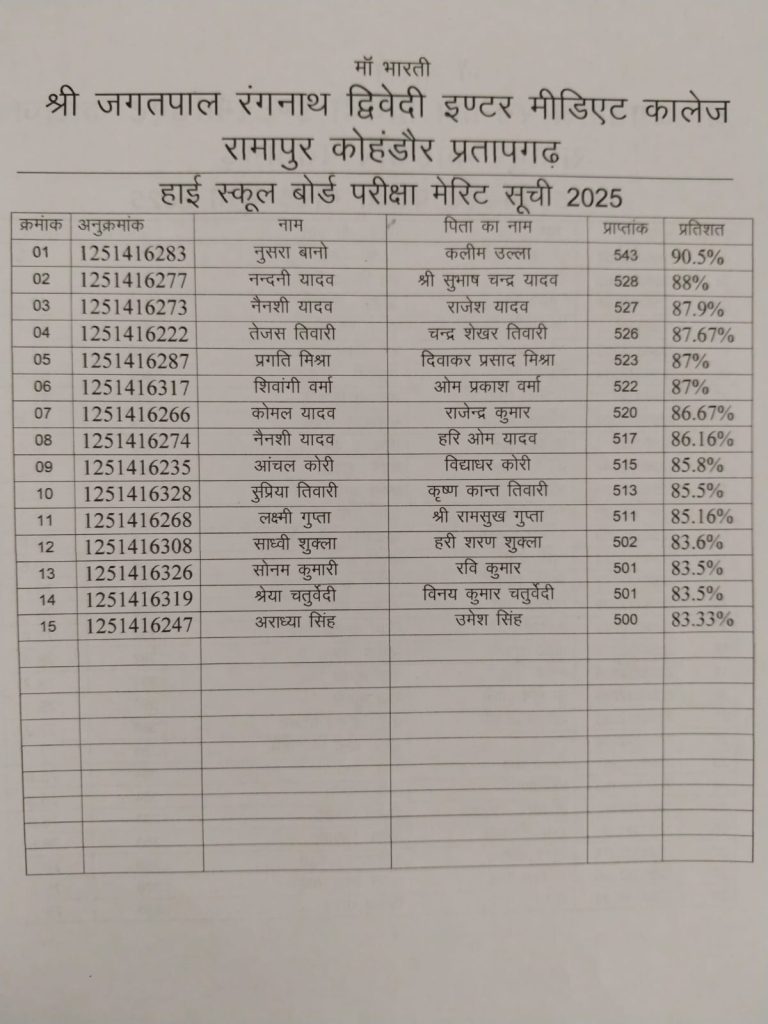 मॉ भारती
श्री जगतपाल रंगनाथ द्विवेदी इण्टर मीडिएट कालेज
रामापुर कोहंडौर प्रतापगढ़
हाई स्कूल बोर्ड परीक्षा मेरिट सूची 2025
क्रमांक अनुक्रमांक नाम पिता का नाम प्राप्तांक प्रतिशत
01 1251416283 नुसरा बानो कलीम उल्ला 543 90.5%
02 1251416277 नन्दनी यादव श्री सुभाष चन्द्र यादव 528 88%
03 1251416273 नैनशी यादव राजेश यादव 527 87.9%
04 1251416222 तेजस तिवारी चन्द्र शेखर तिवारी 526 87.67%
05 1251416287 प्रगति मिश्रा दिवाकर प्रसाद मिश्रा 523 87%
06 1251416317 शिवांगी वर्मा ओम प्रकाश वर्मा 522 87%
07 1251416266 कोमल यादव राजेन्द्र कुमार 520 86.67%
08 1251416274 नैनशी यादव हरि ओम यादव 517 86.16%
09 1251416235 आंचल कोरी विद्याधर कोरी 515 85.8%
10 1251416328 सुप्रिया तिवारी कृष्ण कान्त तिवारी 513 85.5%
11 1251416268 लक्ष्मी गुप्ता श्री रामसुख गुप्ता 511 85.16%
12 1251416308 साध्वी शुक्ला हरी शरण शुक्ला 502 83.6%
13 1251416326 सोनम कुमारी रवि कुमार 501 83.5%
14 1251416319 श्रेया चतुर्वेदी विनय कुमार चतुर्वेदी 501 83.5%
15 1251416247 अराध्या सिंह उमेश सिंह 500 83.33%